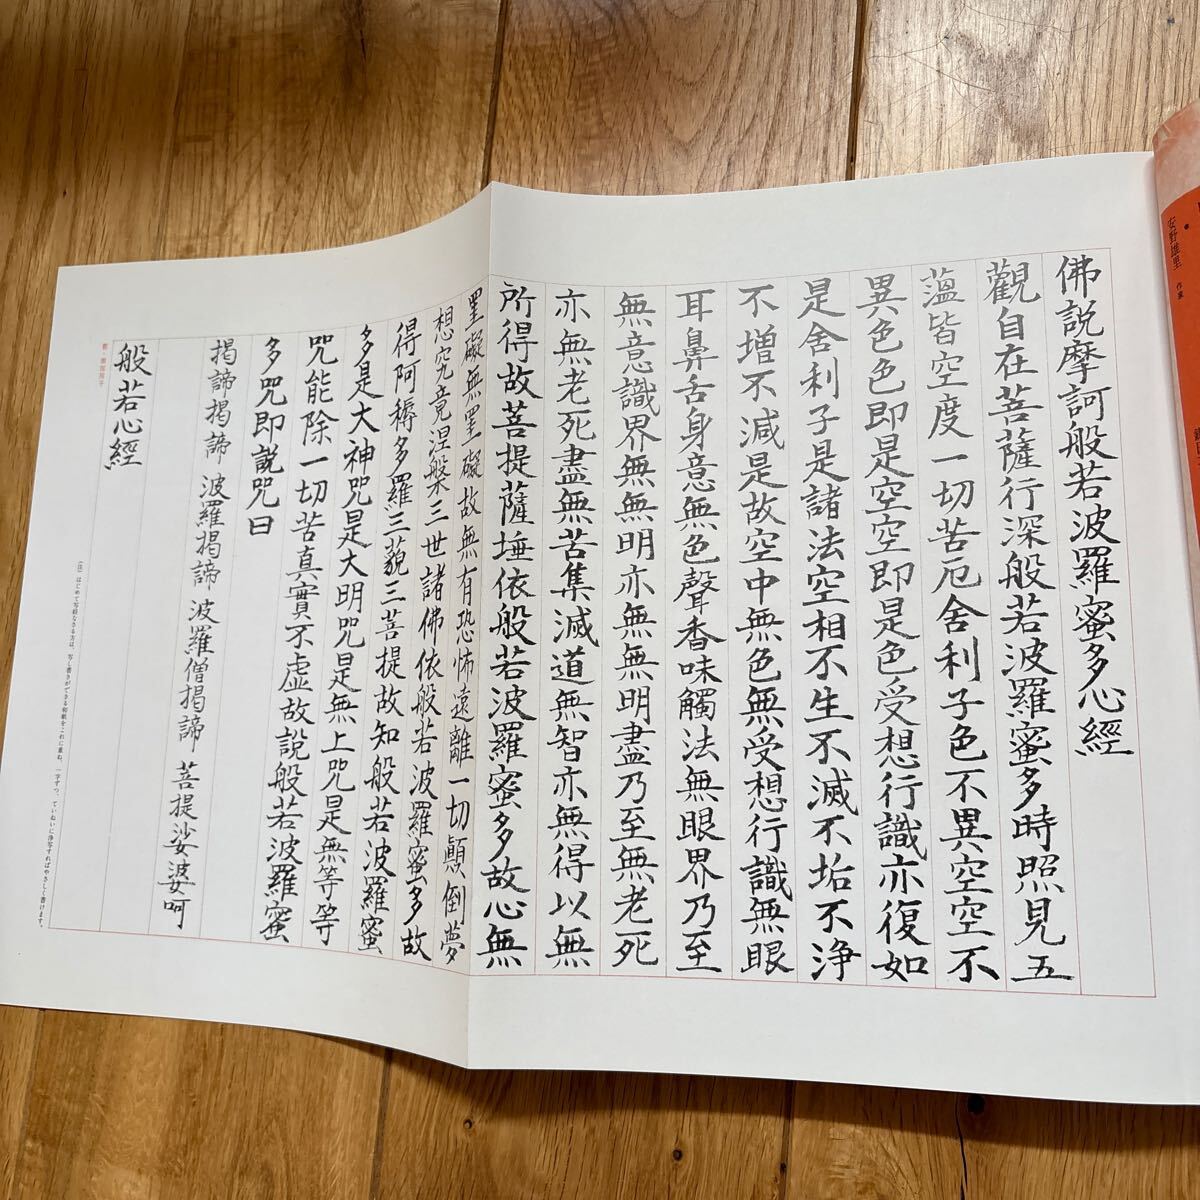 佛説摩訶般若波羅蜜多心經
觀自在菩薩行深般若波羅蜜多時照見五
薀皆空度一切苦厄舎利子色不異空空不
異色色即是空空即是色受想行識亦復如
是舎利子是諸法空相不生不滅不垢不浄
不増不減是故空中無色無受想行識無眼
耳鼻舌身意無色聲香味觸法無眼界乃至
無意識界無無明亦無無明盡乃至無老死
亦無老死盡無苦集滅道無智亦無得以無
所得故菩提薩埵依般若波羅蜜多故心無
罣礙無罣礙故無有恐怖遠離一切顚倒夢
想究竟涅槃三世諸佛依般若波羅蜜多故
得阿耨多羅三藐三菩提故知般若波羅蜜
多是大神咒是大明咒是無上咒是無等等
咒能除一切苦真實不虚故說般若波羅蜜
多咒即説咒曰
掲諦掲諦 波羅掲諦 波羅僧掲諦 菩提娑婆呵
般若心經
(注)はじめて写経なさる方は、写し書きができる和紙をこれに重ね、一字ずつ、ていねいに浄写すればやさしく書けます。
安野雄里 作家